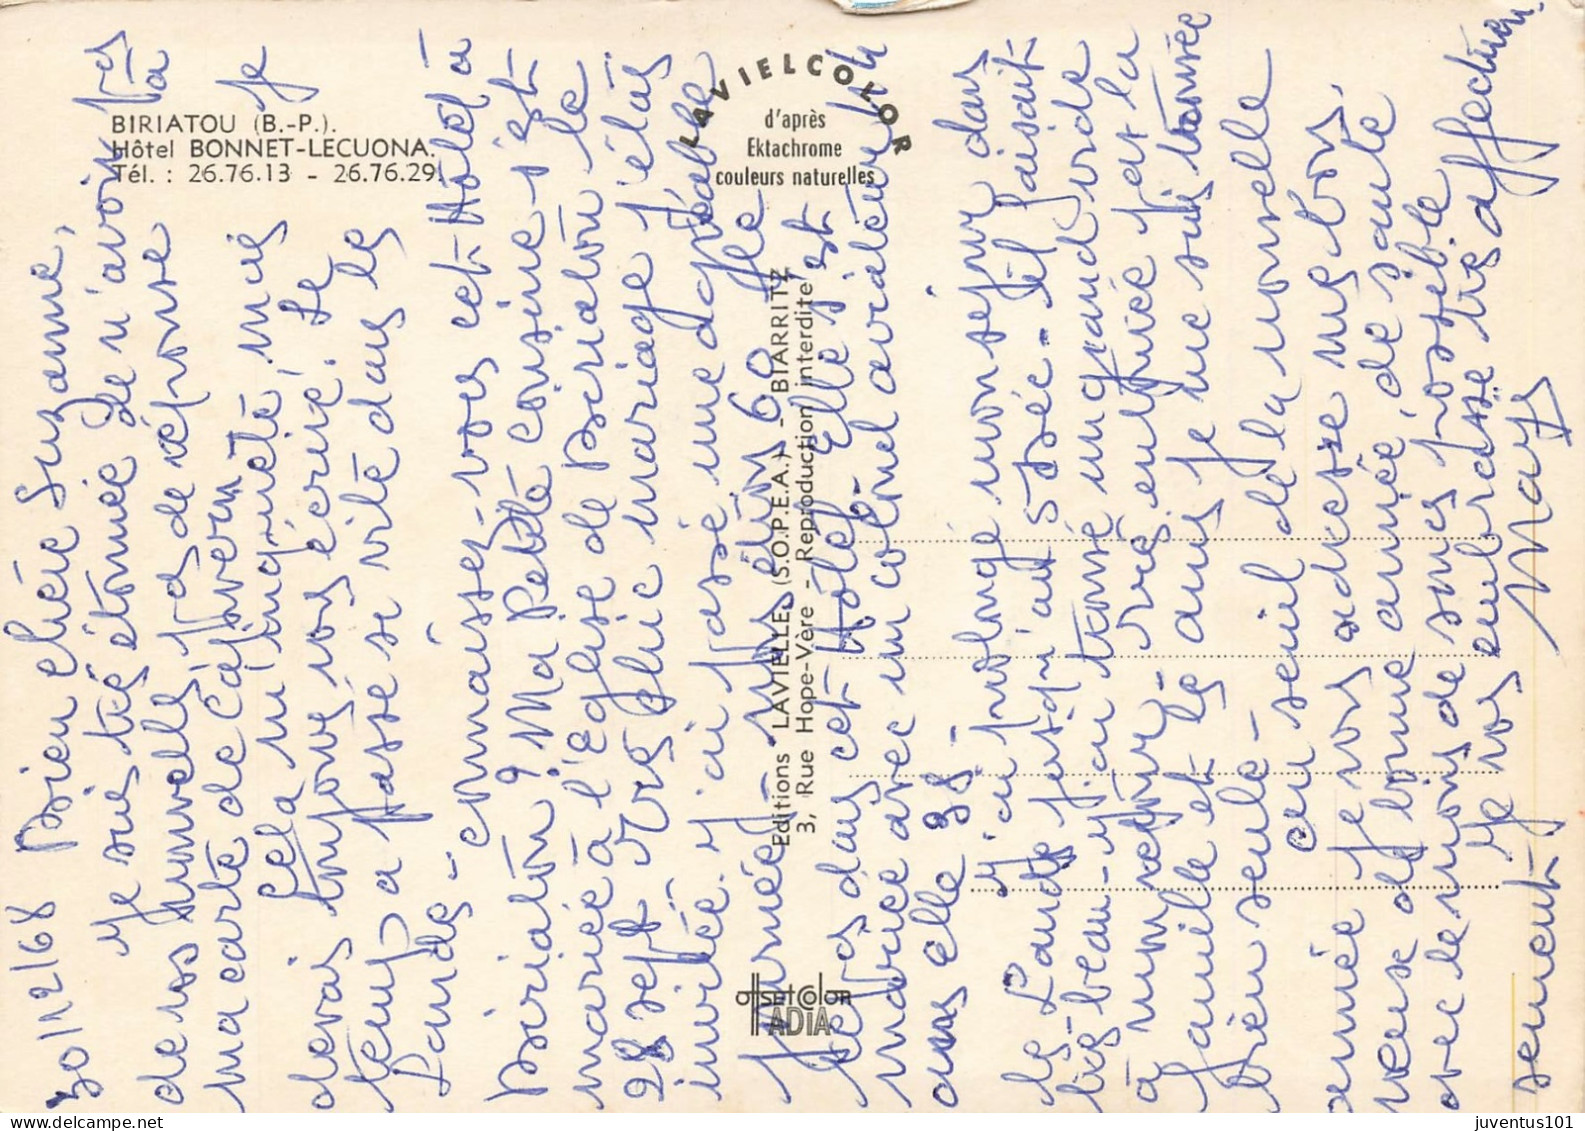 BIRIATOU (B.-P.).
Hôtel BONNET-LECUONA.
Tél. : 26.76.13 - 26.76.29.
LAVIELCOLOR
d'après
Ektachrome
couleurs naturelles
Editions LAVIELLE (S.O.P.E.A.) - BIARRITZ
3, Rue Hope-Vère - Reproduction interdite
offset color
ADIA
30/12/68 Bien chère Suzanne,
Je suis très étonnée de n'avoir pas
de vos nouvelles pas de réponse à
ma carte de Capvern Je
Cela m'inquiète, mais
devais toujours vous écrire. Le
temps a passé si vite dans les
Landes - connaissez-vous cet Hôtel à
Biriatou? Ma petite cousine s'est
mariée à l'Eglise de Biriatou le
28 sept très chic mariage j'étais
invitée. J'ai passé une agréable
journée
dans cet Hôtel Elle est
mariée avec un colonel aviateur
ans elle 38 -
J'ai prolongé mon séjour dans
les Landes jusqu'au 5 Déc - Il faisait
très beau - j'ai trouvé un grand vide
à mon retour - Très entourée par la
famille et les amis je me suis trouvée
bien seule -
Au seuil de la nouvelle
année je vous adresse mes bons
vœux de bonne année, de santé
avec le moins de soucis possible
Je vous embrasse très affectueu-
sement May
juventus101